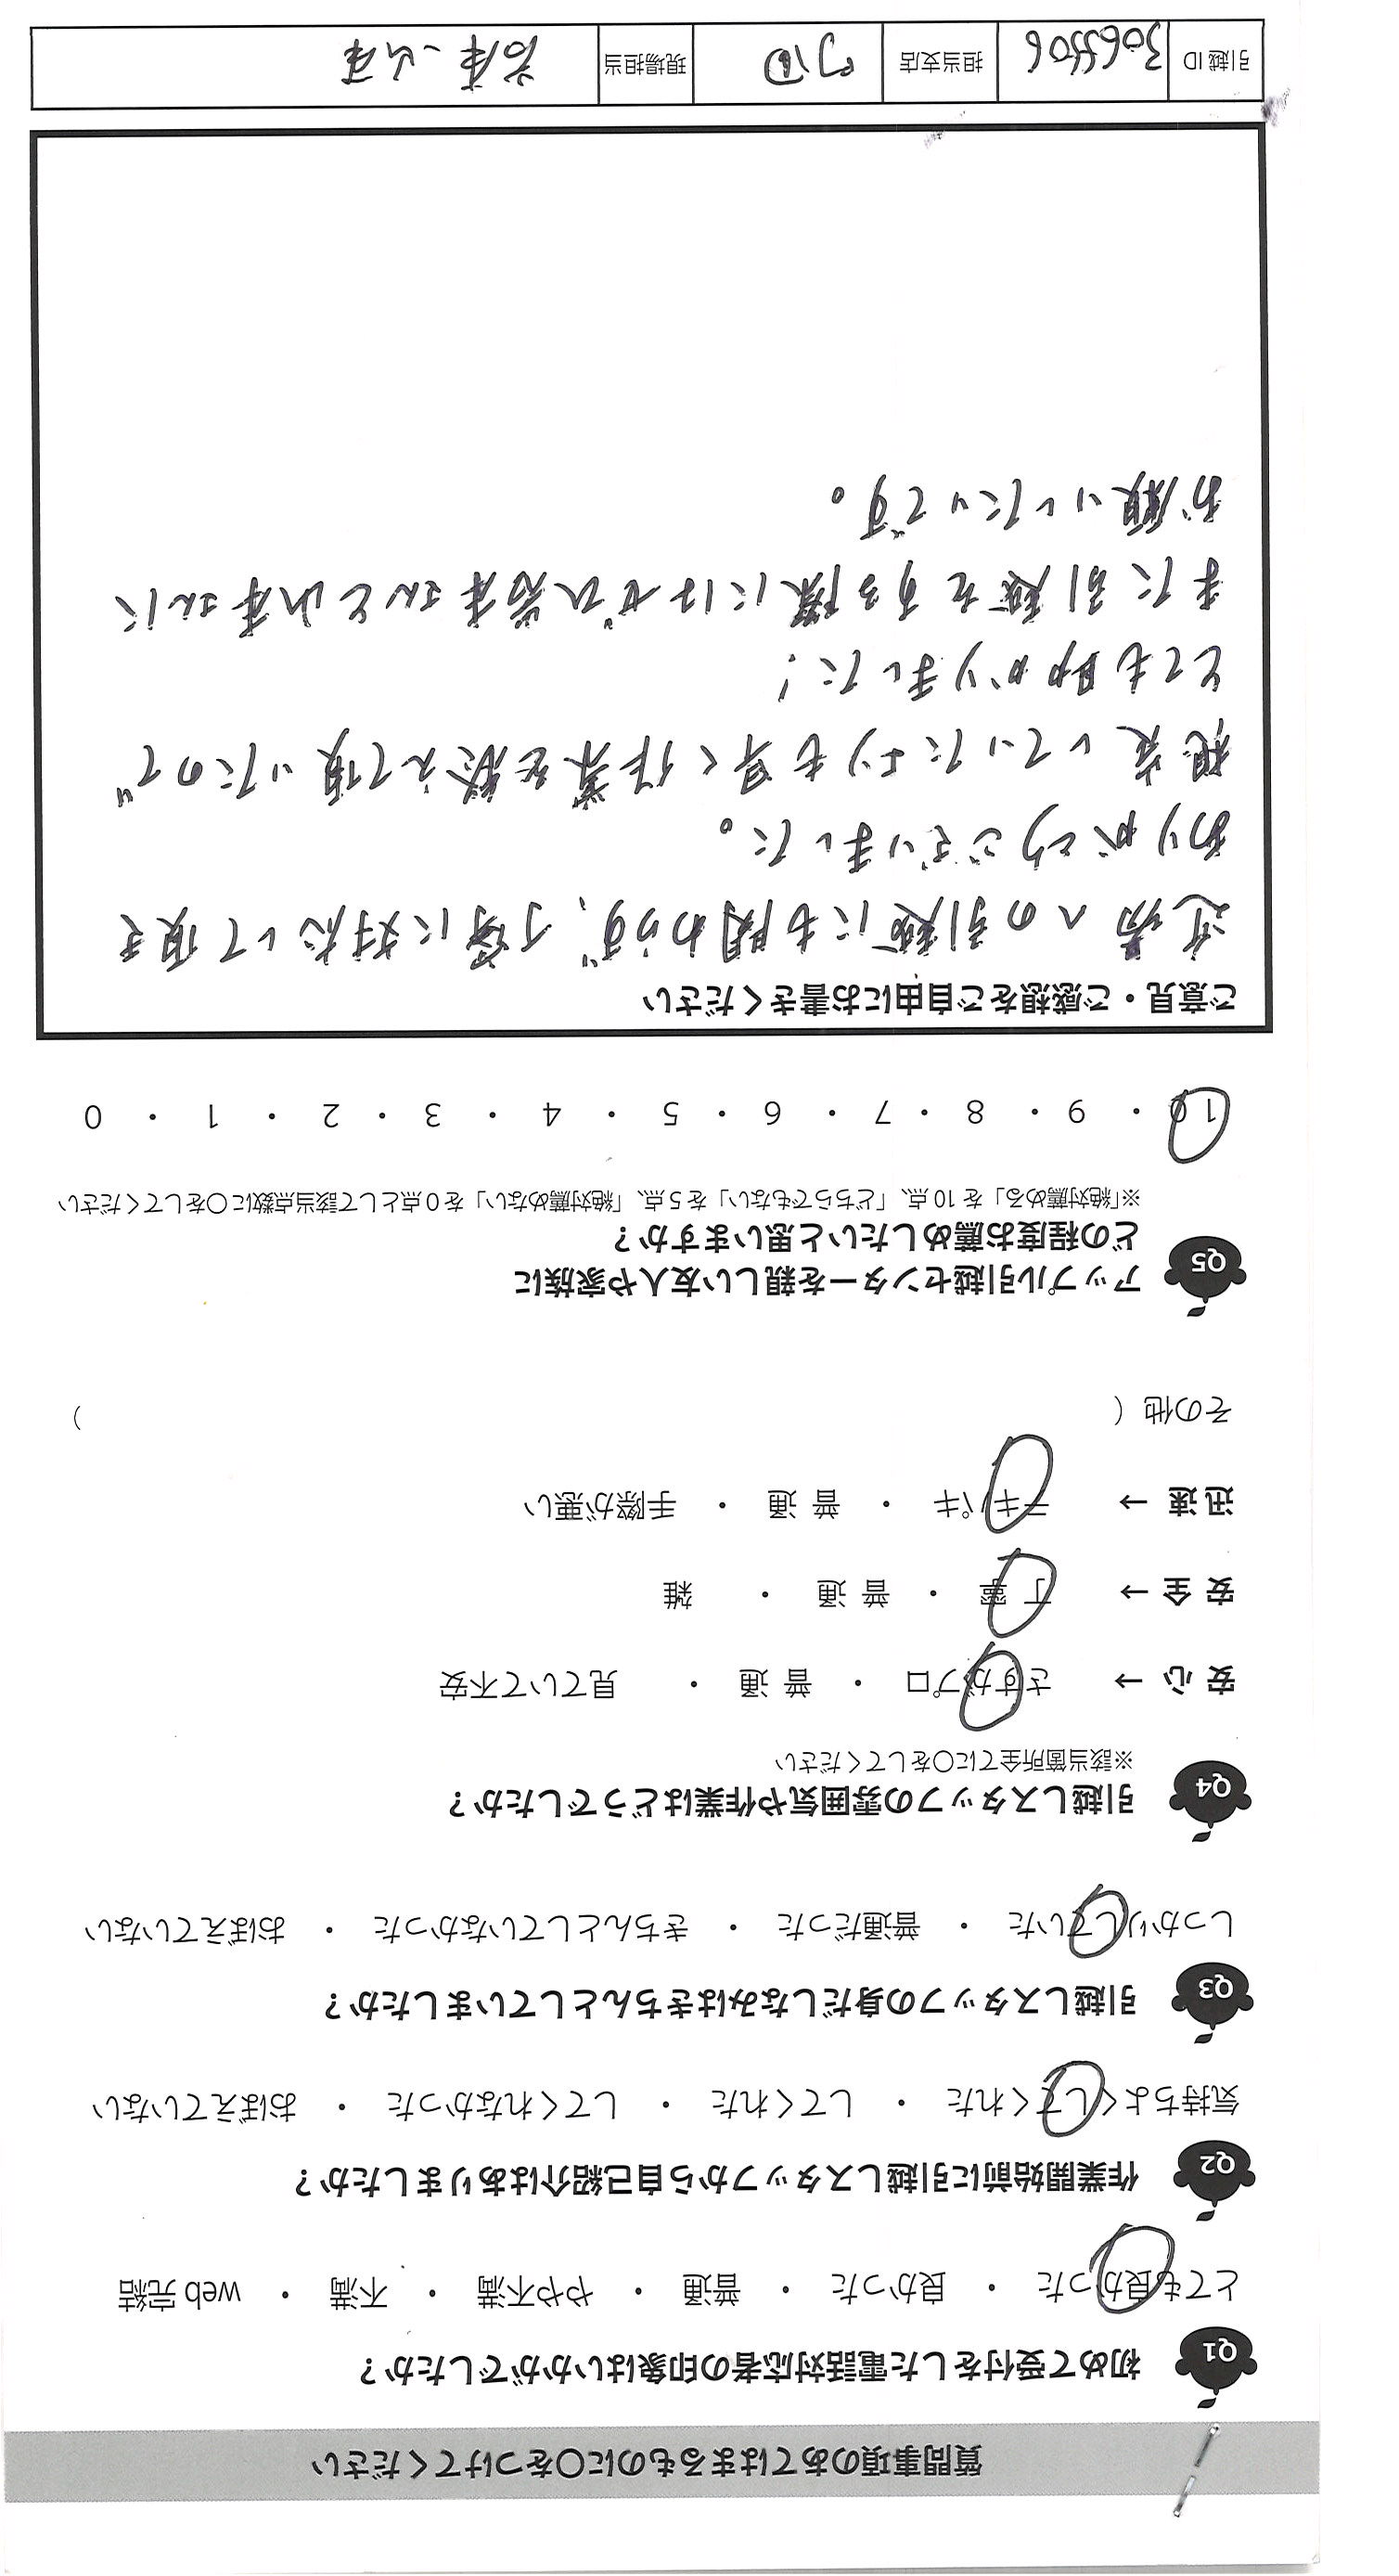 質問事項のあてはまるものに○をつけてください
Q1 初めて受付をした電話対応者の印象はいかがでしたか?
とても良かった ・ 良かった ・ 普通 ・ やや不満 ・ 不満 ・ web 完結
Q2 作業開始前に引越しスタッフから自己紹介はありましたか?
気持ちよくしてくれた ・ してくれた ・ してくれなかった ・ おぼえていない
Q3 引越しスタッフの身だしなみはきちんとしていましたか?
しっかりしていた ・ 普通だった ・ きちんとしていなかった ・ おぼえていない
Q4 引越しスタッフの雰囲気や作業はどうでしたか?
※該当箇所全てに○をしてください
安 心 → さすがプロ ・ 普 通 ・ 見ていて不安
安 全 → 丁 寧 ・ 普 通 ・ 雑
迅 速 → テキパキ ・ 普 通 ・ 手際が悪い
その他 ( )
Q5 アップル引越センターを親しい友人や家族に
どの程度お薦めしたいと思いますか?
※「絶対薦める」を 10 点、「どちらでもない」を 5 点、「絶対薦めない」を 0 点として該当点数に○をしてください
10 ・ 9 ・ 8 ・ 7 ・ 6 ・ 5 ・ 4 ・ 3 ・ 2 ・ 1 ・ 0
ご意見・ご感想をご自由にお書きください
近場への引越にも関わらず、丁寧に対応して頂き
ありがとうございました。
想定していたよりも早く作業を終えて頂いたので
とても助かりました!
また引越をする際にはぜひ岩本さんと山本さんに
お願いしたいです。
引越 ID 3065506 担当支店 現場担当 岩本、山本